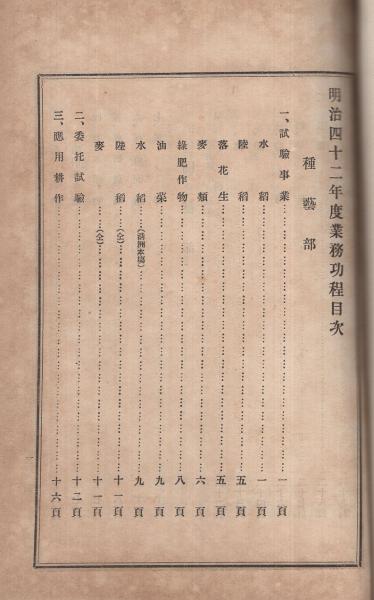 明治四十二年度業務功程目次
種藝部
一、試驗事業…一頁
水稻…一頁
陸稻…五頁
落花生…五頁
麥類…六頁
綠肥作物…八頁
油菜…九頁
水稻…九頁
陸稻…(仝)…十一頁
麥…(仝)…十一頁
二、委托試驗…十二頁
三、應用耕作…十六頁
一